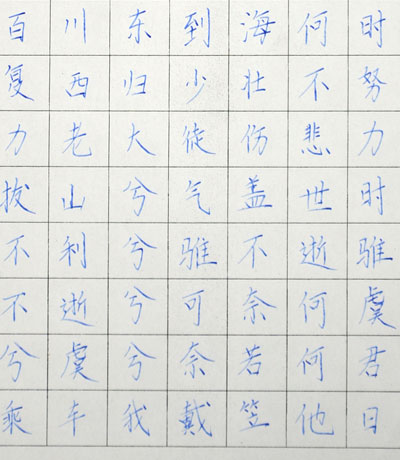 百川东到海何时
复西归少壮不努
力老大徒伤悲力
拔山兮气盖世时
不利兮骓不逝骓
不逝兮可奈何虞
兮虞兮奈若何君
乘车我戴笠他日